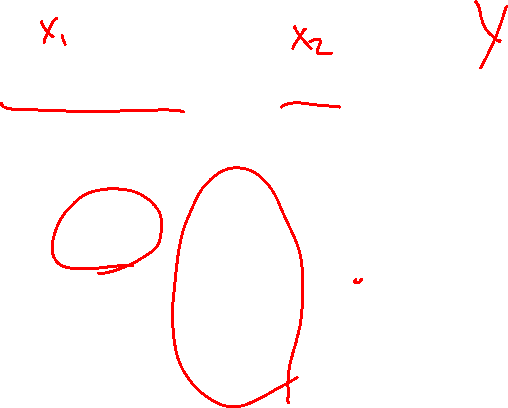 x₁ x₂ y